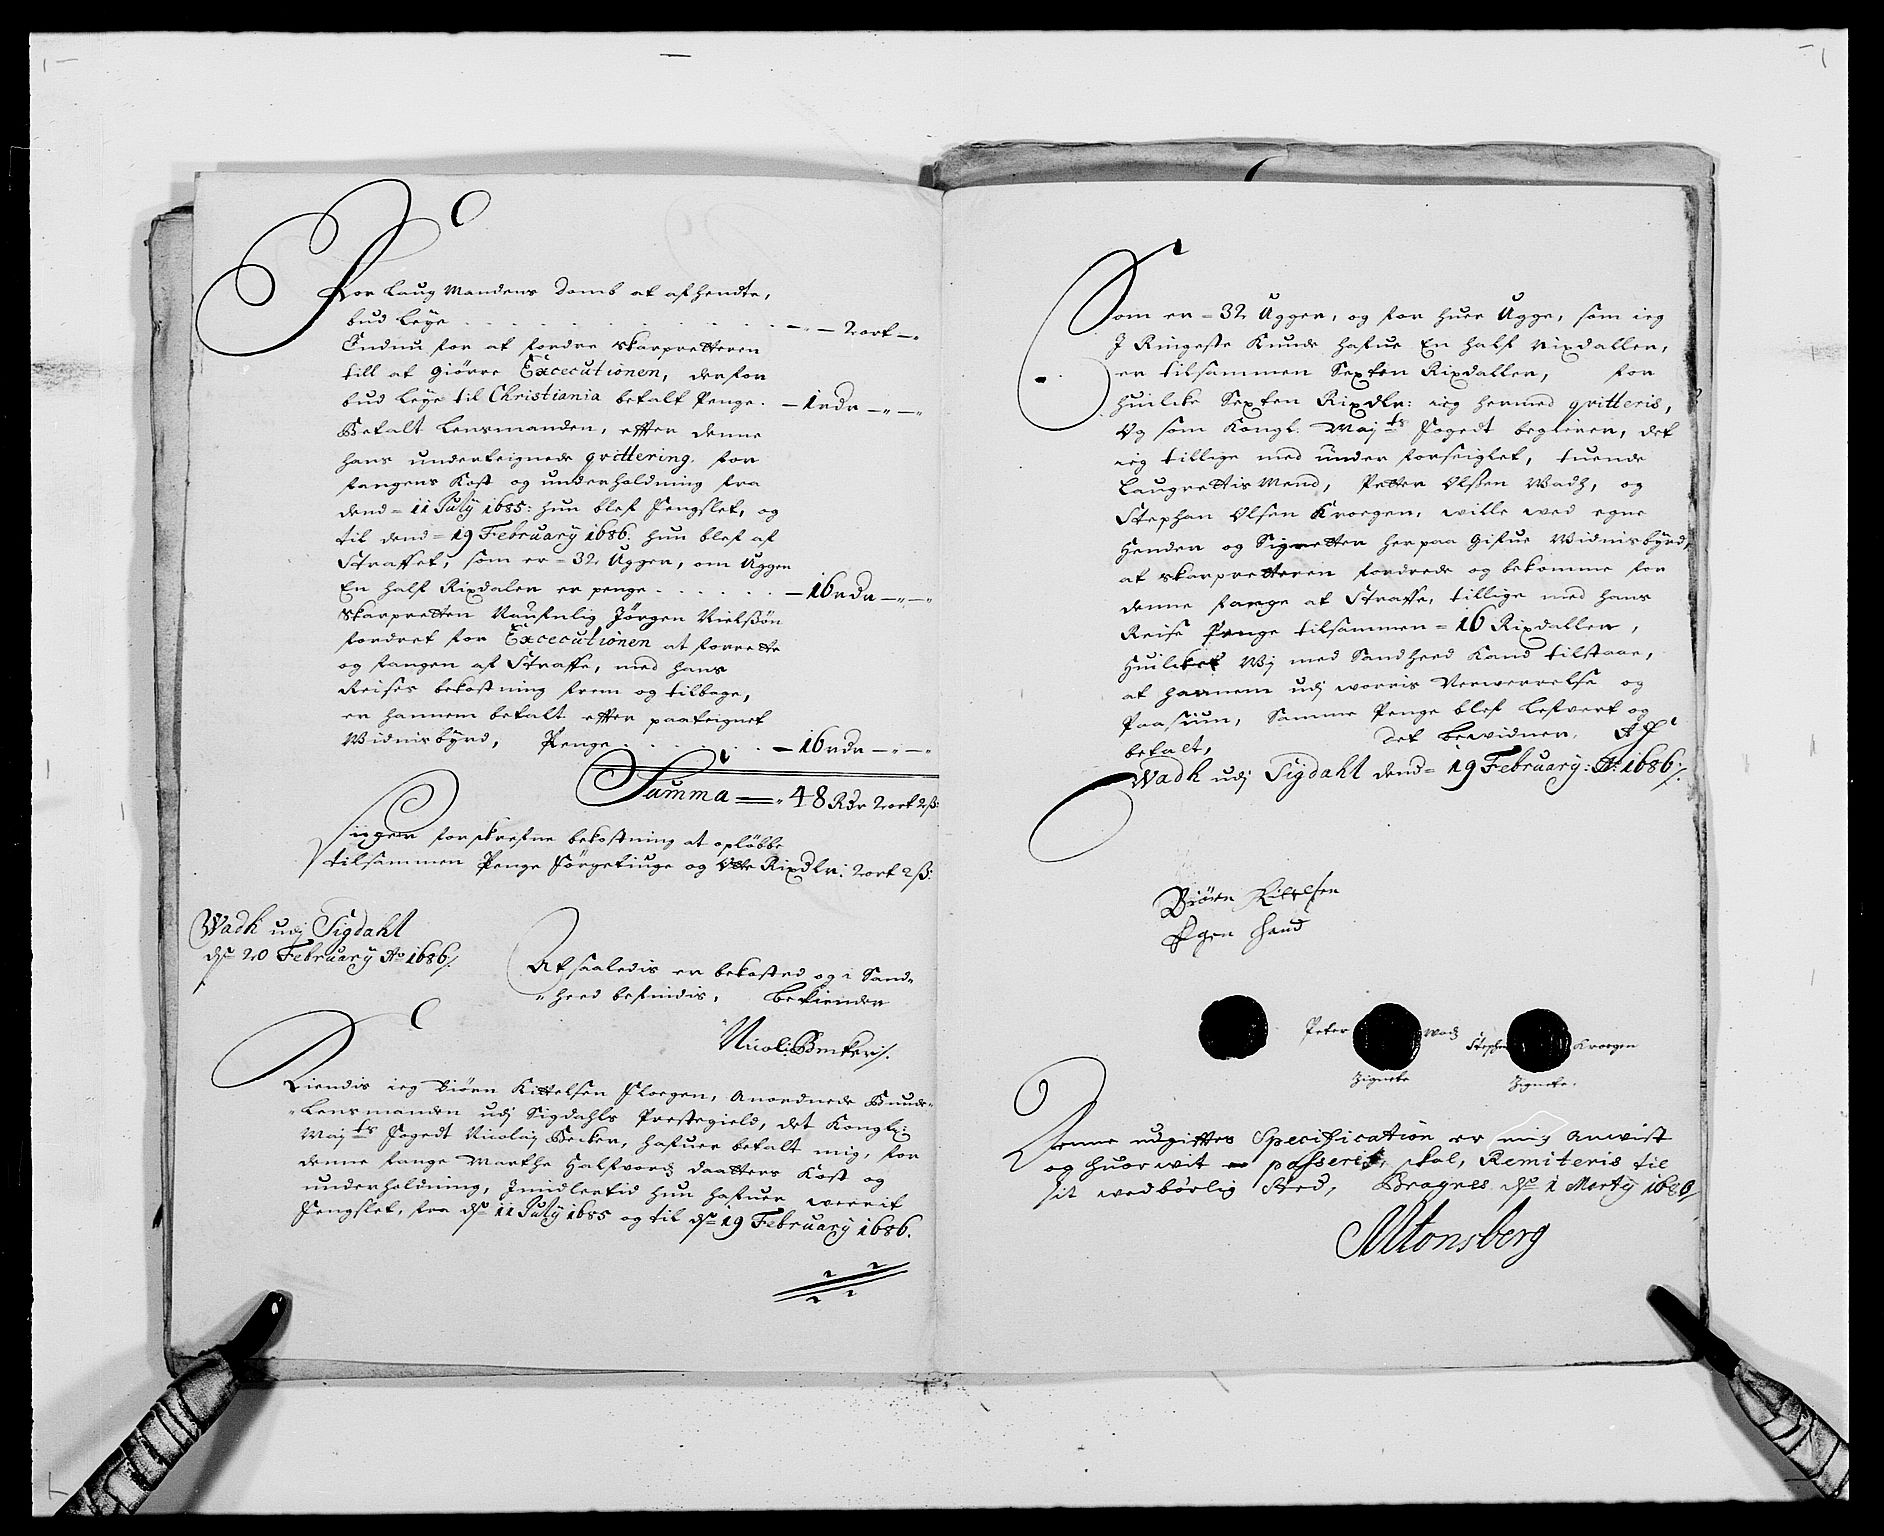 For Laug Mandens Domb at afhendte,
bud leye . . . . . . . . . . — „ — 2 ort — „
Endnu for at fordre skarpretteren
till at giörre Excecutionen, derfor
bud leye til Christiania betalt Penge. — 1 rdr — „ — „
Betalt Lensmanden, effter denne
hans underteignede qvittering. for
fangens Kost og underholdning fra
dend = 11 July 1685: hun blef Fengslet, og
til dend = 19 February 1686. hun blef af
Straffet, som er = 32 Ugger, om Uggen
En half Rixdaler er penge . . . . . . — 16 rdr — „ — „
Skarpretten Naufnlig Jörgen Nielsßön
fordret for Excecutionen at forrette
og fangen af Straffe, med hans
Reises bekostning frem og tilbage,
er hannem betalt effter paateignet
Widnisbyrd, Penge . . . . . . — 16 rdr — „ — „
Summa — „ 48 Rdr 2 ort 2 ß:
forskrefne bekostning at oplöbbe
tilsammen Penge Förgetiuge og Otte Rixdlr: 2 ort 2 ß:
Wadh udj Sigdahl
dn 20 February Ao 1686 /.
At saaledis er bekosted og i Sand„
„heed befindis, Bekiender
Nicolj Becker /.
Kiendis ieg Biörn Kittelsen Floegen, Anordnede Bunde„
„Lensmanden udj Sigdahls Prestegield, det Kongl:
Majts Fogedt Nicolaj Becker, hafuer betalt mig, for
denne fange Marthe Halfvordz daatters Kost og
underholdning, Jmidlertid hun hafuer werrit
Fengslet, fra dn 11 July 1685 og til dn 19 February 1686.
Som er = 32 Ugger, og for huer Ugge, som ieg
J Ringeste Kunde hafue En half Rixdaller,
er tilsammen Sexten Rixdaller, for
huilcke Sexten Rixdlr: ieg hermed qvitteris,
Og som Kongl. Majts Fogedt begierer, det
ieg tillige med under forseiglet, tuende
Laugrettis Mend, Petter Olßen Wadh, og
Stephan Olsen Kroegen, wille med egne
Hender og Signetter herpaa Gifue Widnisbyrd,
at skarpretteren fordrede og bekomme for
denne fange at Straffe, tillige med hans
Reise Penge tilsammen = 16 Rixdaller,
Huilcket Wj med Sandheed Kand tilstaae,
at hannem udj worris Nerwerrelse og
Paasiun, Samme Penge blef lefvert og
betalt, det bewidner,
Wadh udj Sigdahl dend = 19 February: Ao: 1686 /.
Biörn Kittelsen
Egen Haand
Peter Wadz
Zignete
Stephen Kroegen
Zignete.
Denne udgifftes Specification er mig Anwist
og huor wit passeris, skal, Remiteris til
sit wedbörlig sted, Bragnes dn 1 Marty 1686 /
Mtonsberg